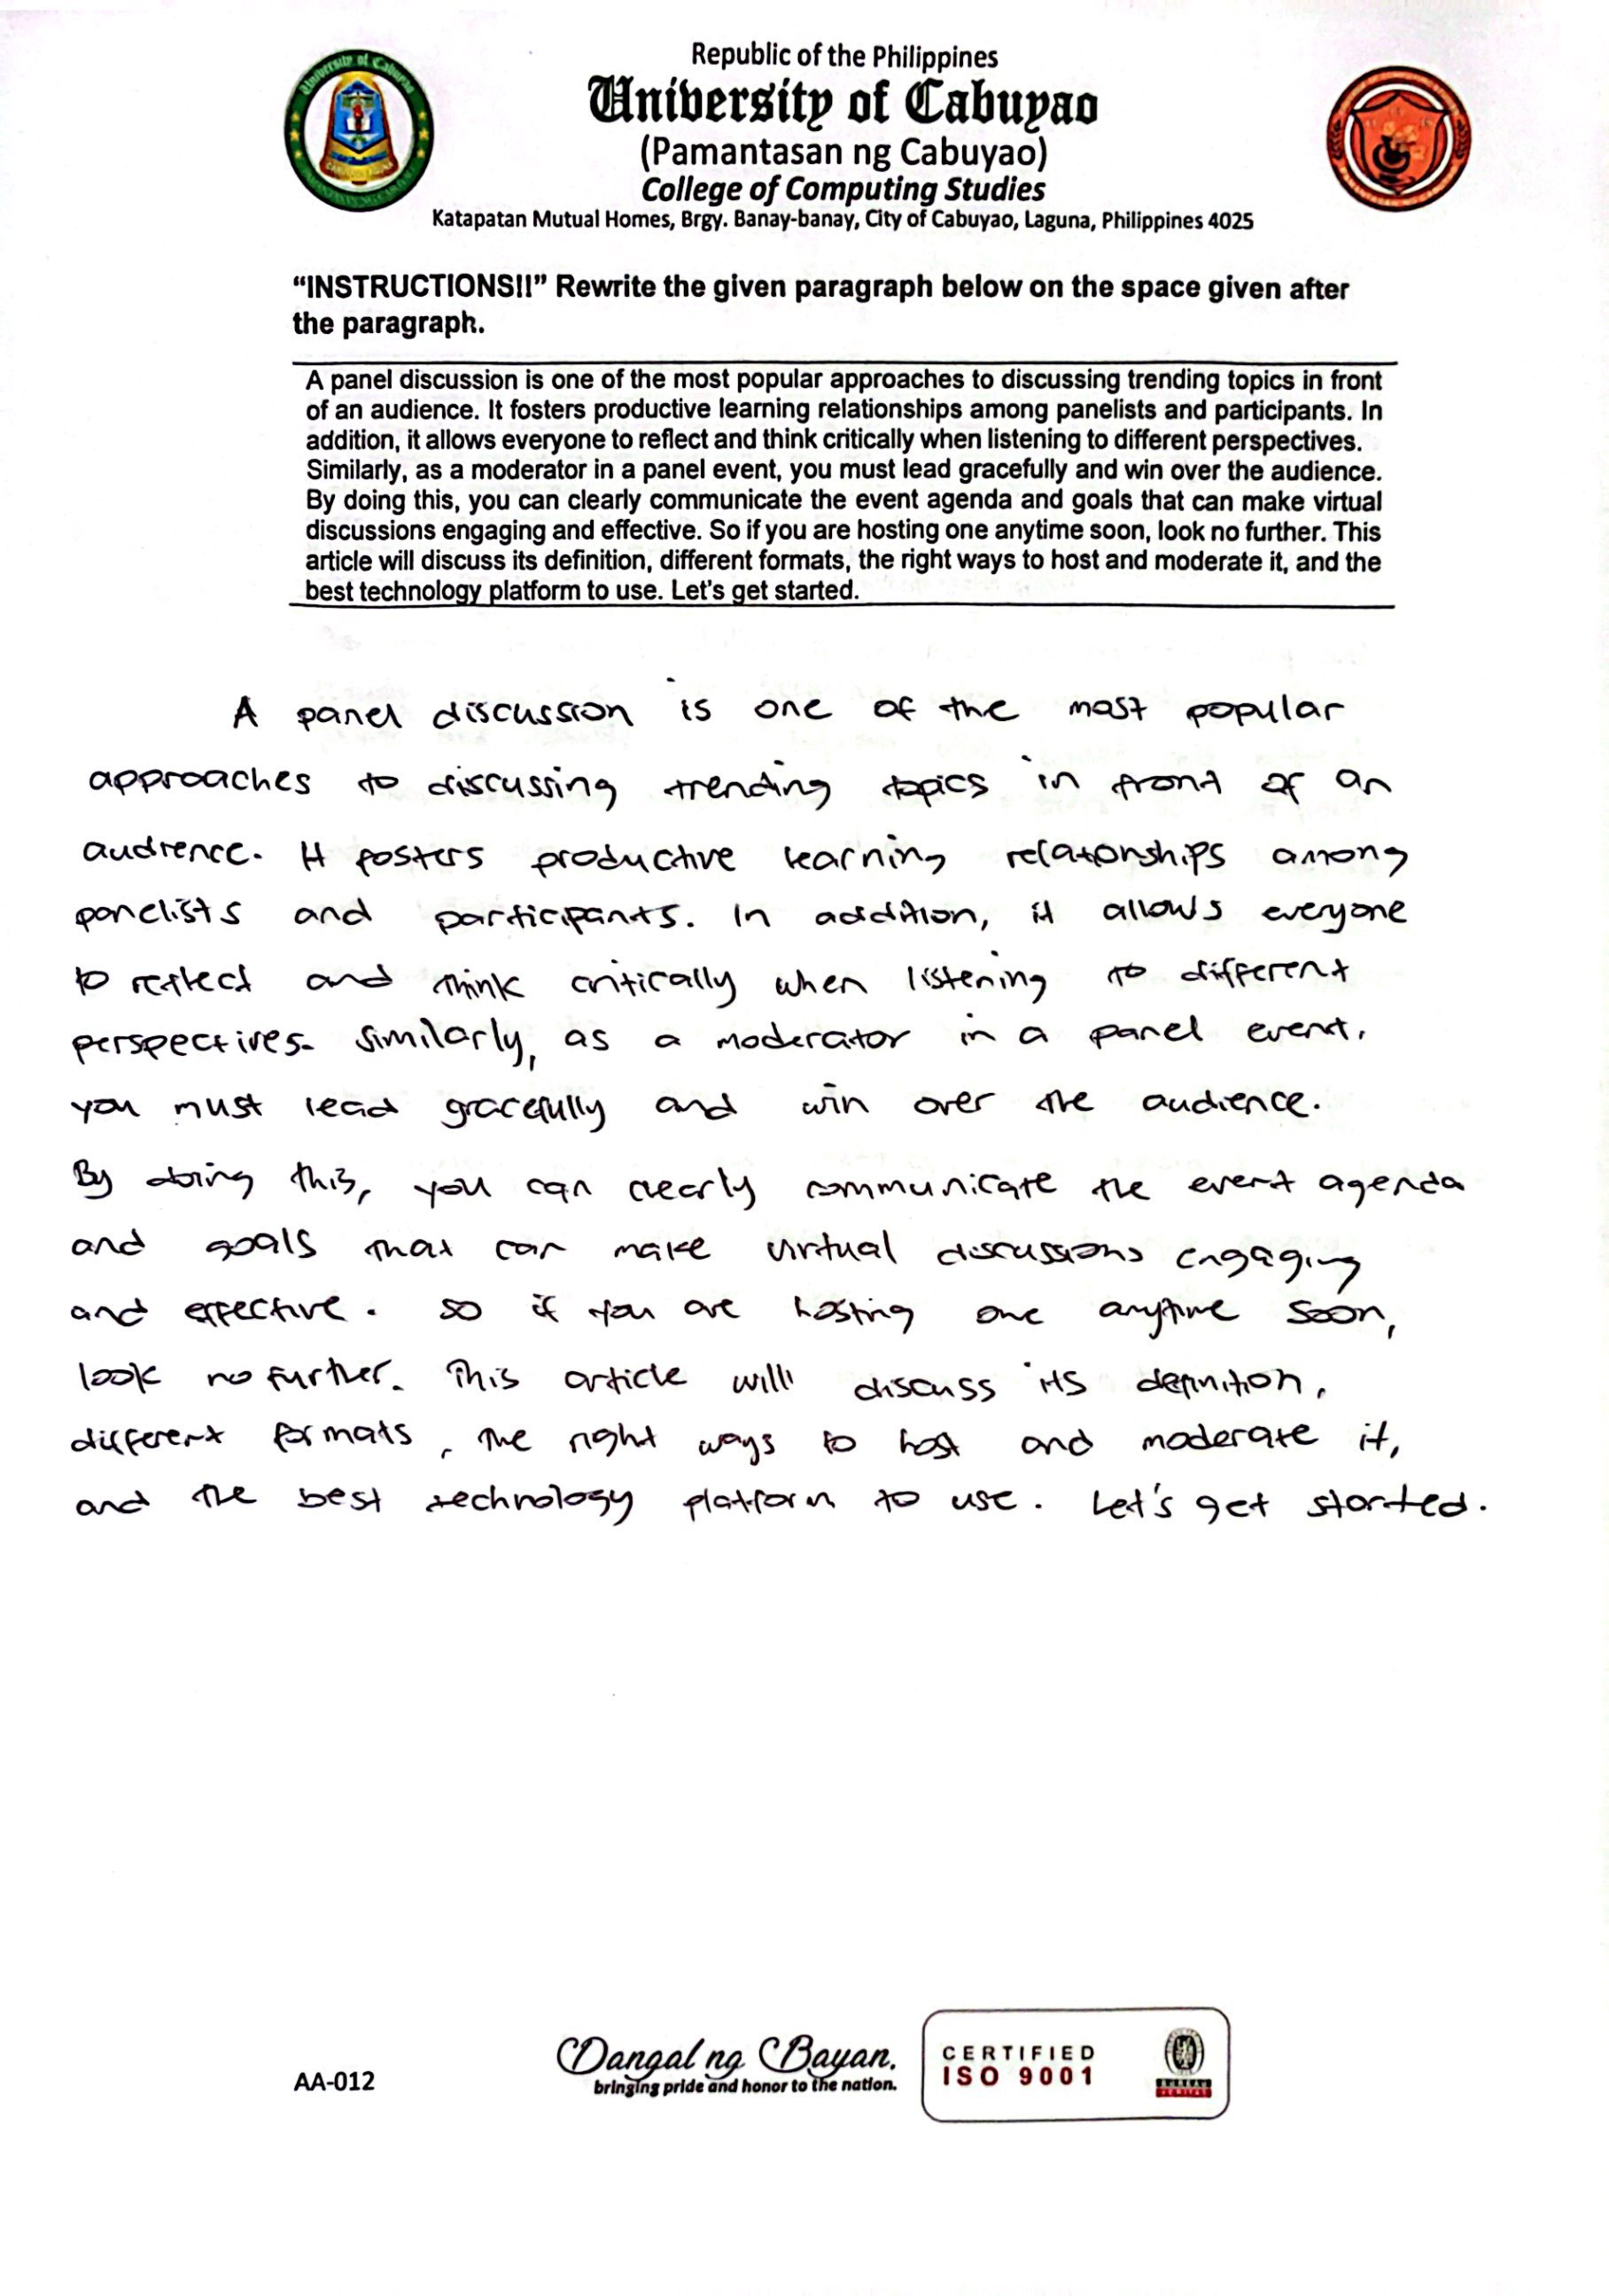 Republic of the Philippines
University of Cabuyao
(Pamantasan ng Cabuyao)
College of Computing Studies
Katapatan Mutual Homes, Brgy. Banay-banay, City of Cabuyao, Laguna, Philippines 4025
“INSTRUCTIONS!!” Rewrite the given paragraph below on the space given after
the paragraph.
A panel discussion is one of the most popular approaches to discussing trending topics in front
of an audience. It fosters productive learning relationships among panelists and participants. In
addition, it allows everyone to reflect and think critically when listening to different perspectives.
Similarly, as a moderator in a panel event, you must lead gracefully and win over the audience.
By doing this, you can clearly communicate the event agenda and goals that can make virtual
discussions engaging and effective. So if you are hosting one anytime soon, look no further. This
article will discuss its definition, different formats, the right ways to host and moderate it, and the
best technology platform to use. Let's get started.
A panel discussion is one of the most popular
approaches to discussing trending topics in front of an
audience. It fosters productive learning relationships among
panelists and participants. In addition, it allows everyone
to reflect and think critically when listening to different
perspectives. Similarly, as a moderator in a panel event,
you must lead gracefully and win over the audience.
By doing this, you can clearly communicate the event agenda
and goals that can make virtual discussions engaging
and effective. So if you are hosting one anytime soon,
look no further. This article will discuss its definition,
different formats, the right ways to host and moderate it,
and the best technology platform to use. Let's get started.
AA-012
Dangal ng Bayan.
bringing pride and honor to the nation.
CERTIFIED
ISO 9001
BUREAU
VERITAS